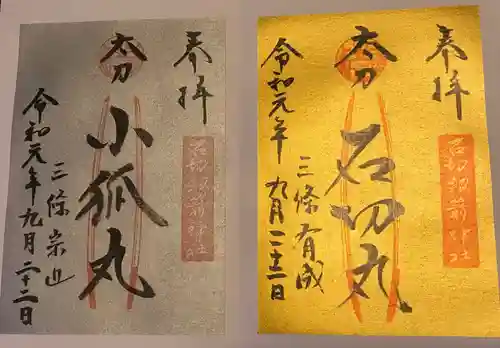 奉拝
太刀
小狐丸
石切劔箭神社
三條宗近
令和元年九月二十二日
奉拝
太刀
石切丸
石切劔箭神社
三條有成
令和元年九月二十二日